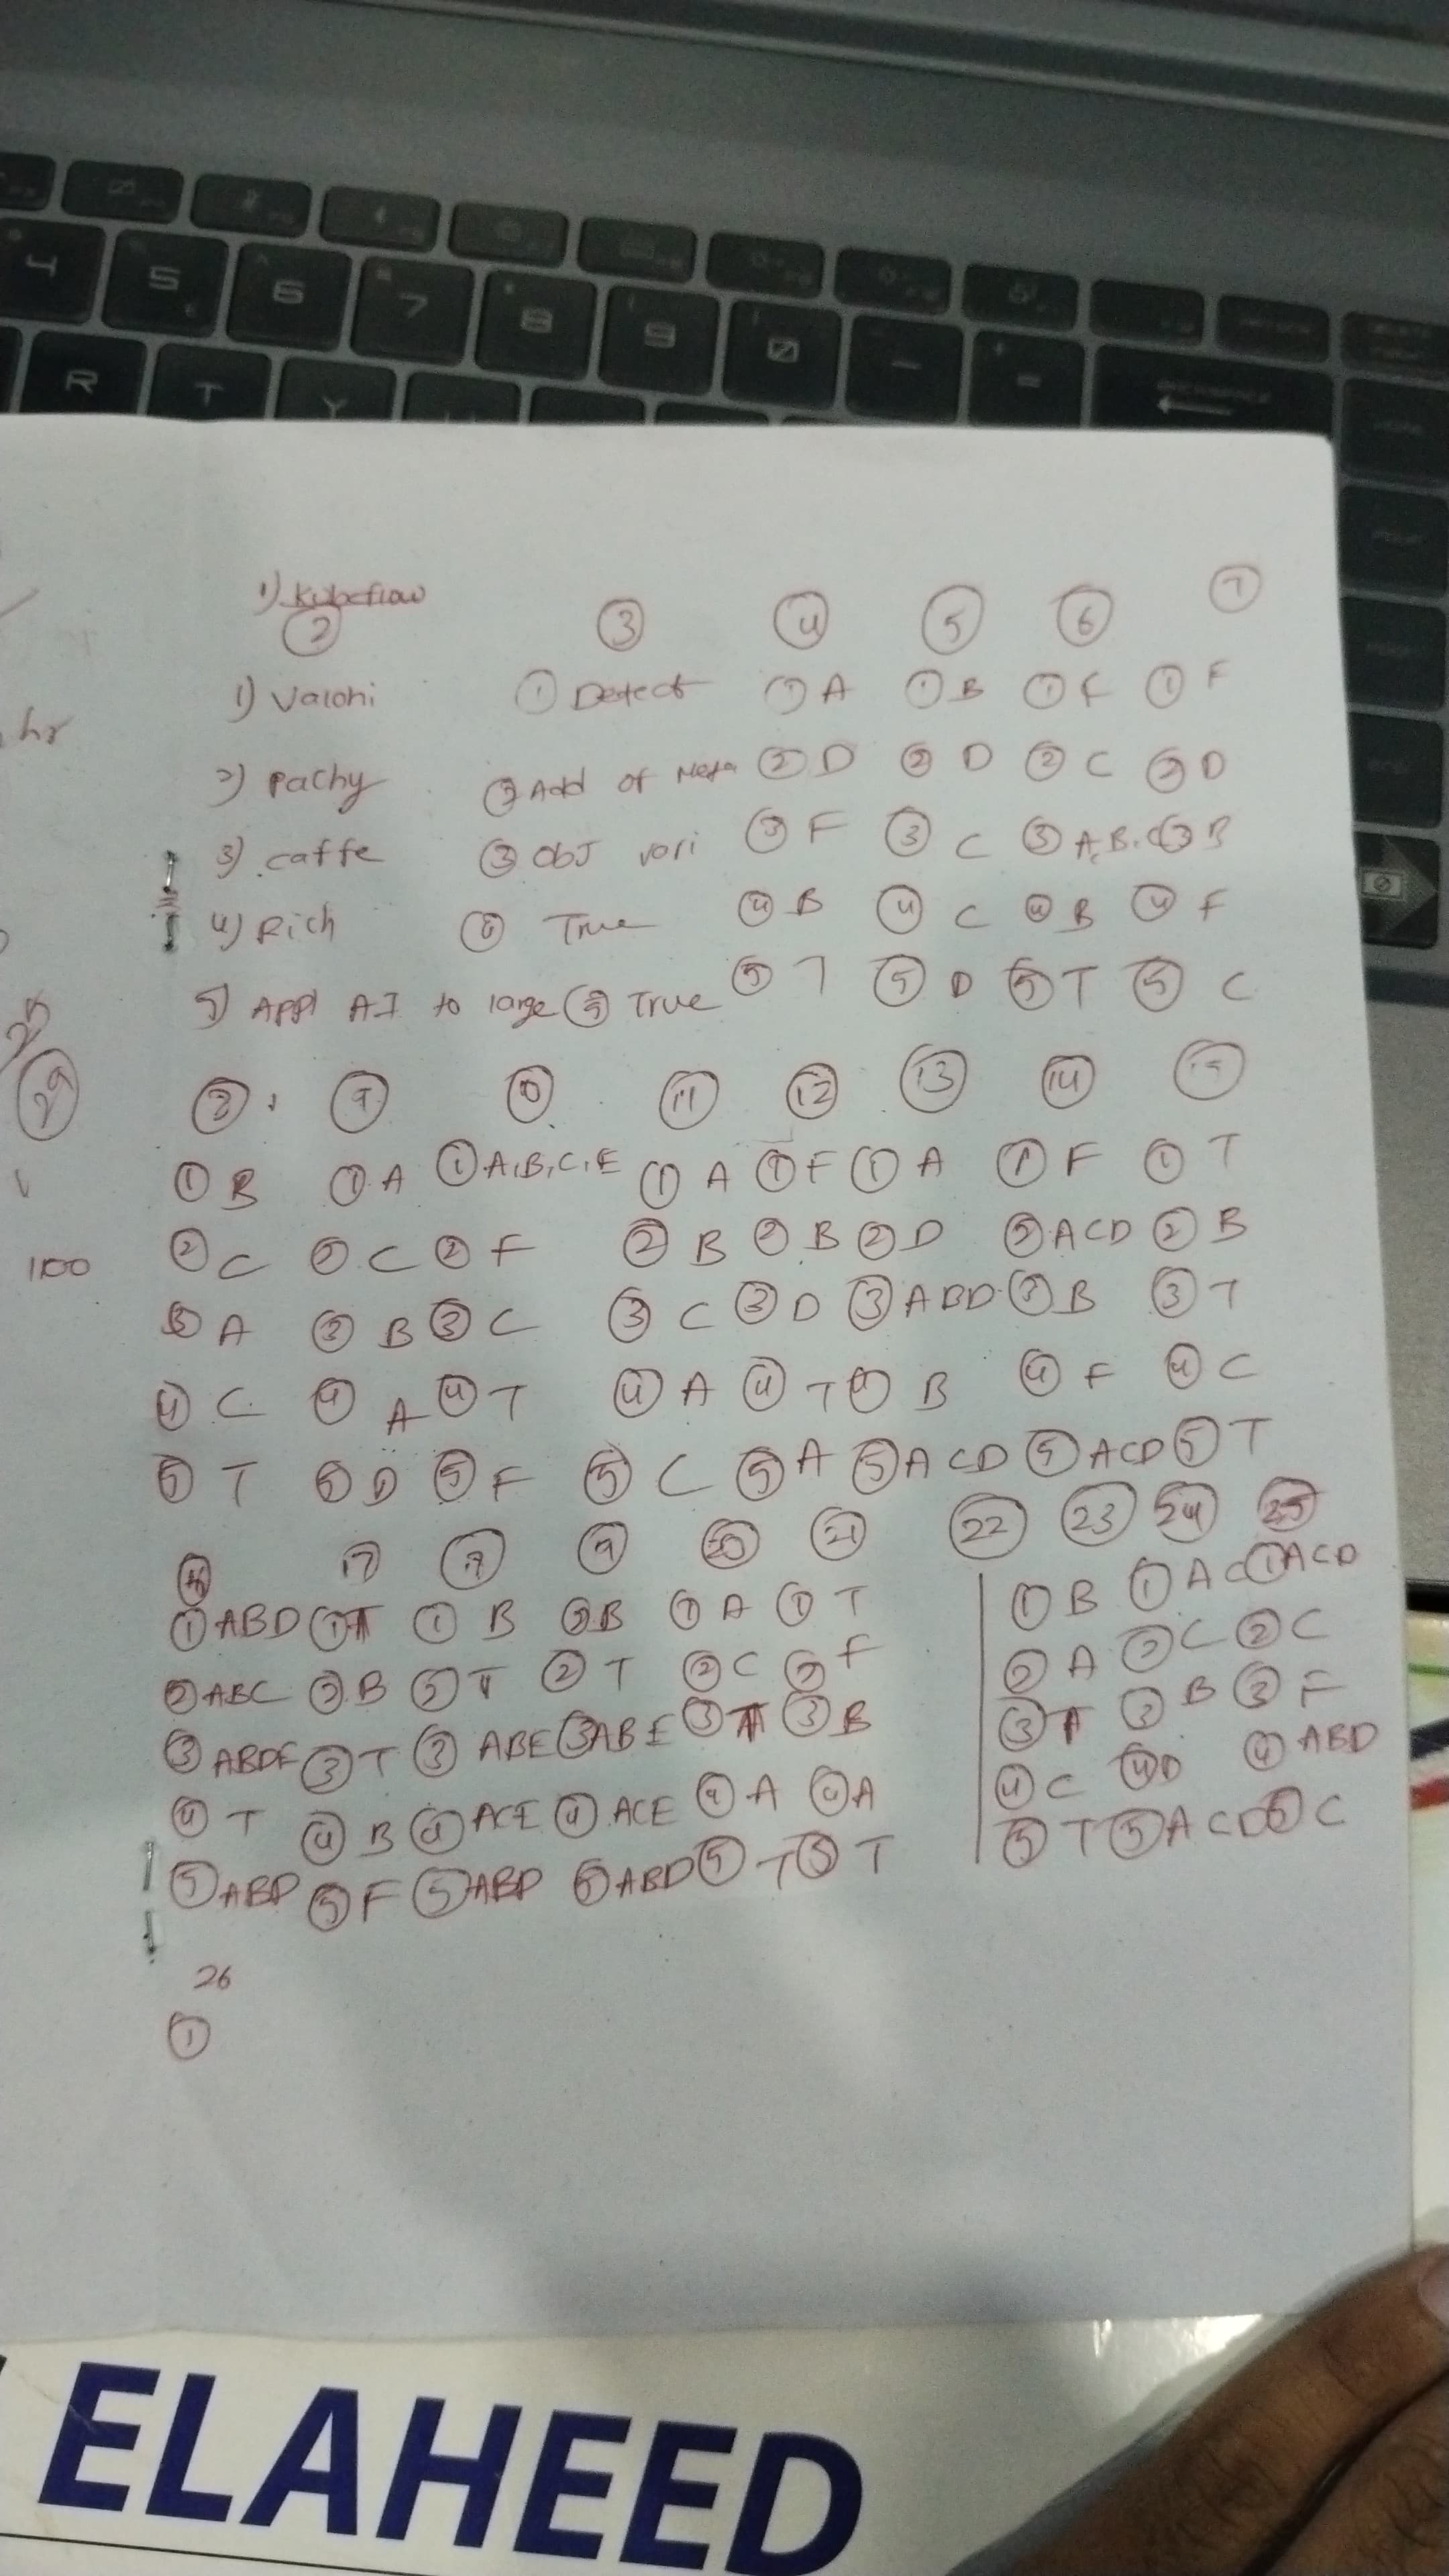 4 5 6 7 8 9 0 -
R T Y
1) Kubeflow
2 3 4 5 6 7
1) Valohi ① Detect ① A ① B ① F ① F
2) Pachy ② Add of Meta ② D ② D ② C ② D
3) caffe ③ Obj vari ③ F ③ C ③ A,B,C ③ B
4) Rich True ④ B ④ C ④ B ④ F
5) Appl AI to large ⑤ True ⑤ T ⑤ D ⑤ T ⑤ C
hr
29
100
8 9 10 11 12 13 14 15
① B ① A ① A,B,C,E ① A ① F ① A ① F ① T
② C ② C ② F ② B ② B ② D ② ACD ② B
③ A ③ B ③ C ③ C ③ D ③ ABD ③ B ③ T
④ C ④ A ④ T ④ A ④ T ④ B ④ F ④ C
⑤ T ⑤ D ⑤ F ⑤ C ⑤ A ⑤ ACD ⑤ ACD ⑤ T
16 17 20 21 22 23 24 25
① ABD ① ① B B ① A ① T ① B ① AC ① ACD
② ABC ② B ② T ② T ② C ② F ② A ② C ② C
③ ③ T ③ ABE ③ ABE ③ ③ B ③ ③ B ③ F
④ T ④ B ④ ACE ④ ACE ④ A ④ A ④ C ④ D ④ ABD
⑤ ABD ⑤ F ⑤ ABD ⑤ ABD ⑤ T ⑤ T ⑤ T ⑤ ACD ⑤ C
26
①
ELAHEED